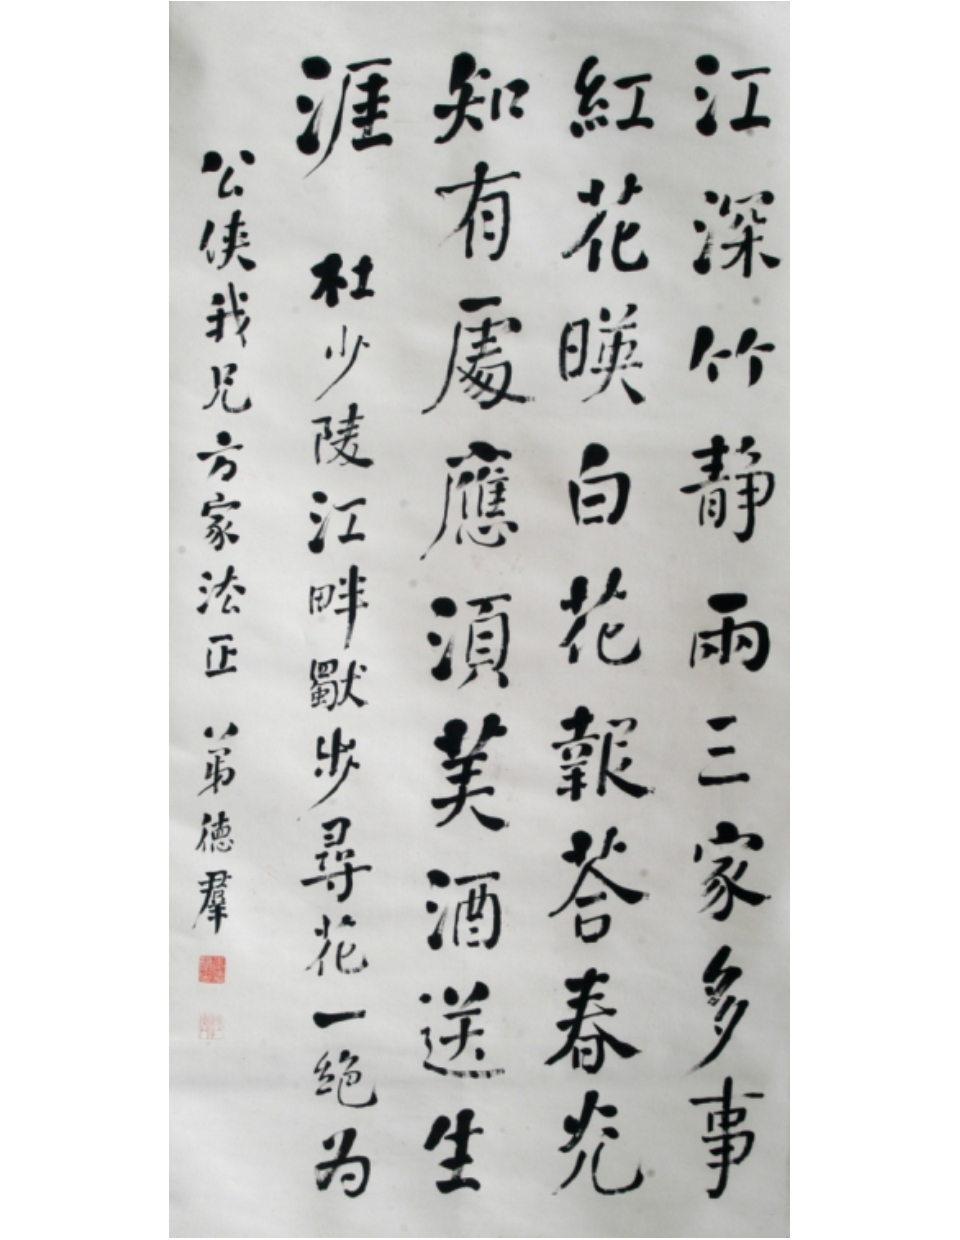 江深竹靜兩三家多事
紅花暎白花報荅春光
知有處應須美酒送生
涯
杜少陵江畔獨步尋花一絕为
公俠我兄方家法正 弟德羣